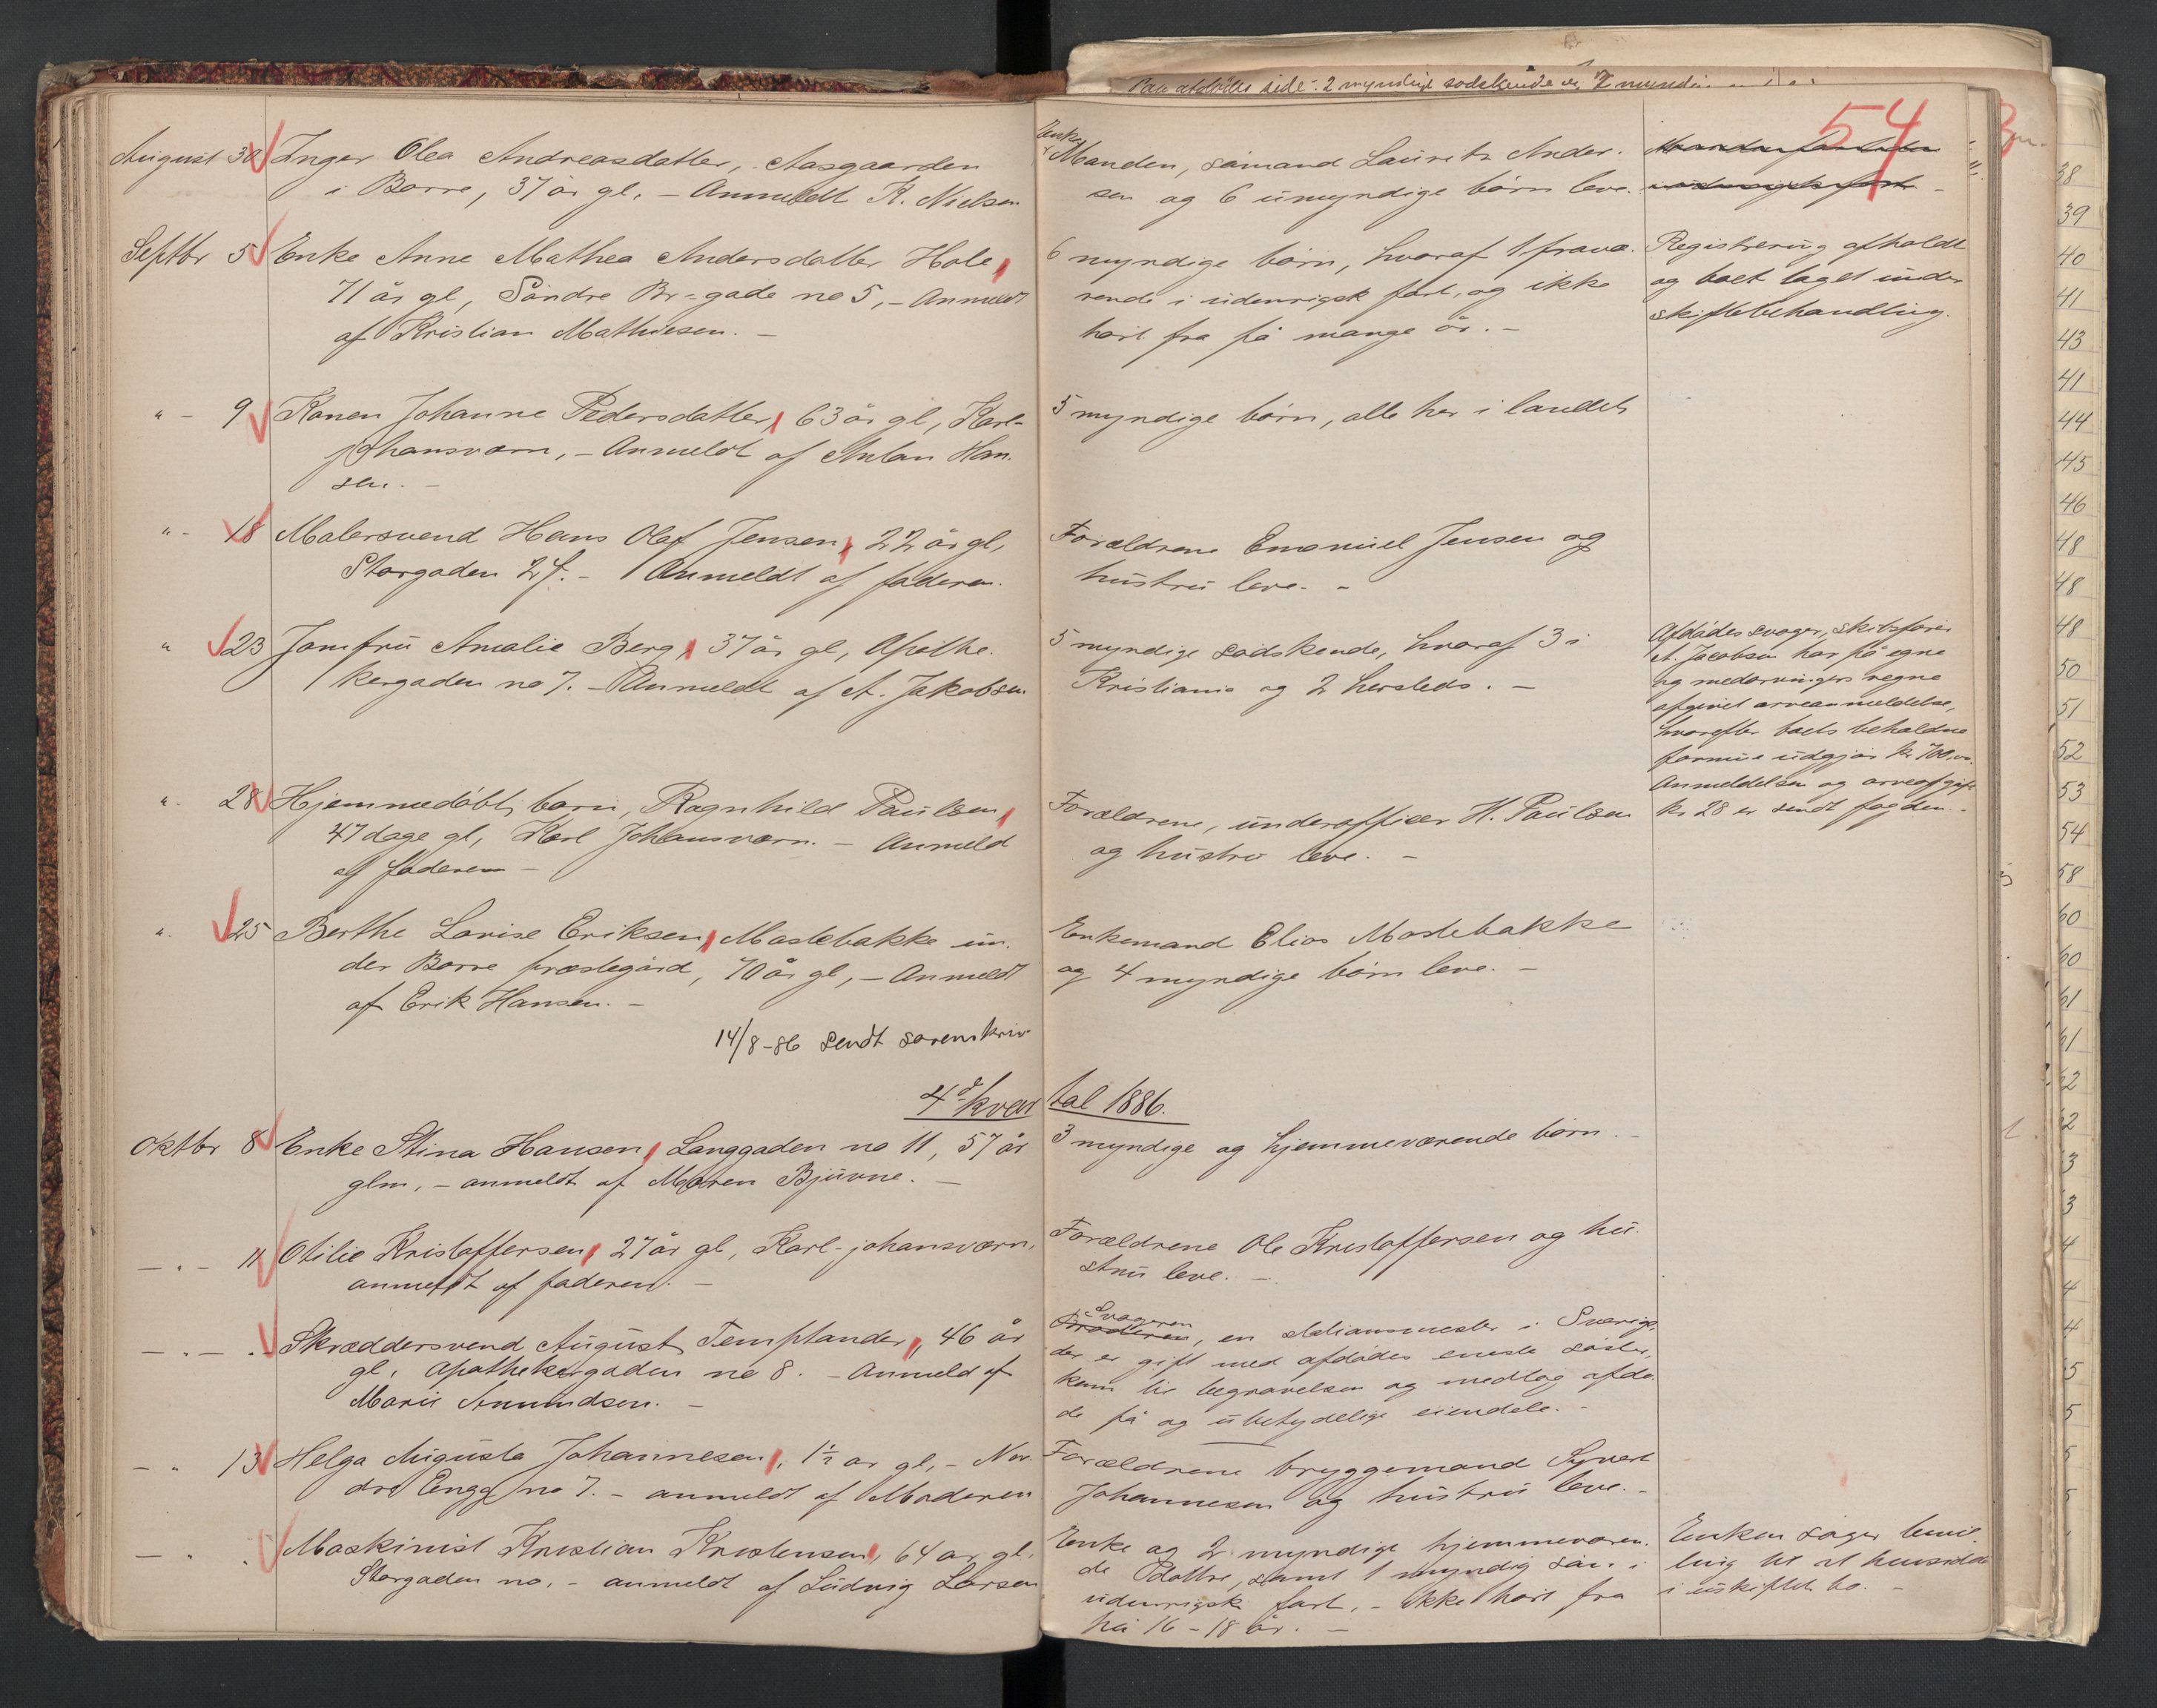 Paa modstående side: 2 myndige sødskende og 2
54
August 30 Inger Olea Andreasdatter, Aasgaarden
i Borre, 37 år gl. – Anmeldt K. Nielsen
Enkem.
Manden, sømand Lauritz Ander-
sen og 6 umyndige børn leve.
Septbr 5 Enke Anne Mathea Andersdatter Hole,
71 år gl, Søndre Br-gade no 5, – Anmeldt
af Kristian Mathiesen. –
6 myndige børn, hvoraf 1 fravæ-
rende i udenrigsk fart, og ikke
hørt fra på mange år. –
Registrering afholdt
og boet taget under
skiftebehandling.
" – 9 Konen Johanne Pedersdatter, 63 år gl, Karl-
johansværn, – Anmeldt af Anton Han-
sen. –
5 myndige børn, alle her i landet
" – 18 Malersvend Hans Olaf Jensen, 22 år gl,
Storgaden 24. – Anmeldt af faderen.
Forældrene Emanuel Jensen og
hustru leve. –
" 23 Jomfru Amalie Berg, 37 år gl, Apothe-
kergaden no 7. – Anmeldt af A. Jakobsen
5 myndige sødskende, hvoraf 3 i
Kristiania og 2 hersteds. –
Afdødes svoger, skibsfører
A. Jacobsen har på egne
og medarvingers vegne
afgivet arveanmeldelse,
hvorefter boets beholdne
formue udgjør kr 700,00.
Anmeldelsen og arveafgift
kr 28 er sendt fogden. –
" 28 Hjemmedøbt barn, Ragnhild Paulsen,
47 dage gl, Karl Johansværn. – Anmeld
af faderen –
Forældrene, underofficer H. Paulsen
og hustru leve. –
" 25 Berthe Lovise Eriksen, Mastebakke un-
der Borre præstegård, 70 år gl, – Anmeldt
af Erik Hansen. –
Enkemand Elias Mastebakke
og 4 myndige børn leve. –
14/8-86 sendt sorenskriv
4de kvartal 1886.
Oktbr 8 Enke Stina Hansen, Langgaden no 11, 57 år
glm, – anmeldt af Maren Bjurne. –
3 myndige og hjemmeværende børn. –
– " – 11 Otilie Kristoffersen, 27 år gl, Karl-johansværn,
anmeldt af faderen. –
Forældrene Ole Kristoffersen og hu-
stru leve. –
– " – " Skræddersvend August Templander, 46 år
gl, Apothekergaden no 8. – Anmeld af
Marie Amundsen. –
Svogeren
Broderen, en stationsmester i Sverige,
der er gift med afdødes eneste søster,
kom til begravelsen og medtog afdø-
de få og ubetydelige eiendele. –
– " 13 Helga Augusta Johannesen, 1½ år gl, – Nor-
dre Engg no 7. – anmeldt af Moderen
Forældrene bryggemand Syvert
Johannesen og hustru leve. –
– " " Maskinist Kristian Kristensen, 64 år gl,
Storgaden no, – anmeldt af Ludvig Larsen
Enke og 2 myndige hjemmeværen-
de døttre, samt 1 myndig søn i
udenrigsk fart, – ikke hørt fra
på 16 – 18 år. –
Enken søger bevil-
ling til at hensidde
i uskiftet bo. –
38
39
40
41
43
41
44
45
46
48
48
48
50
51
52
53
54
58
60
60
61
61
62
2
3
3
4
4
4
5
5
5
5